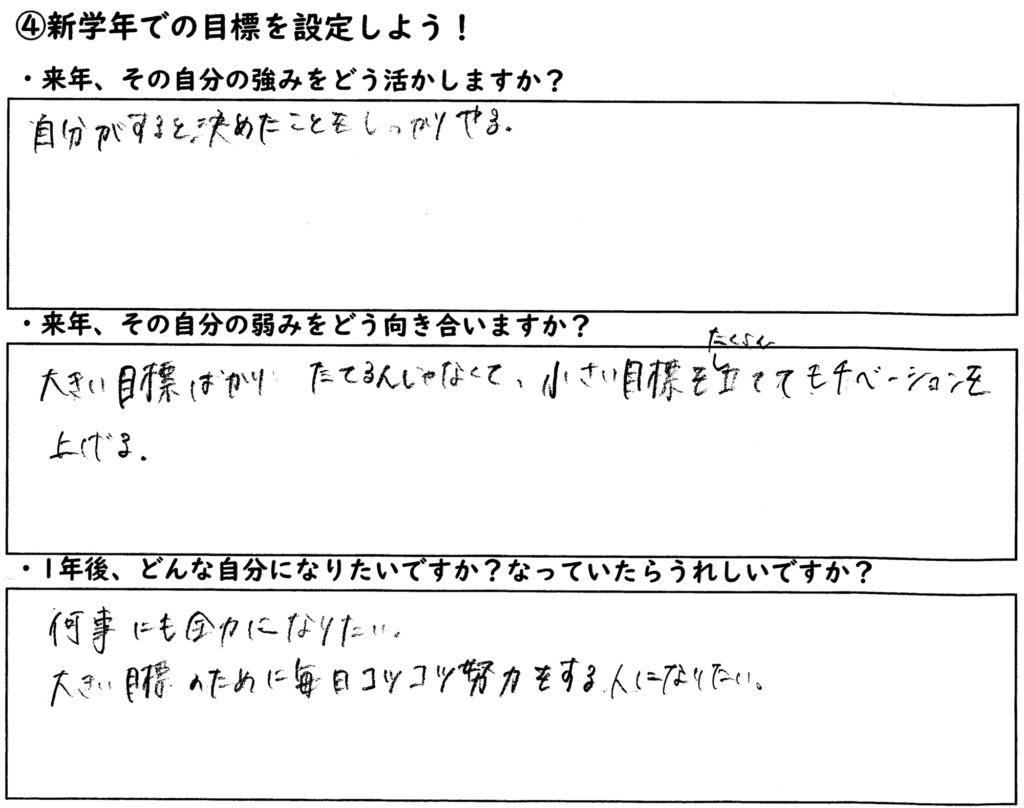 ④新学年での目標を設定しよう！
・来年、その自分の強みをどう活かしますか？
自分がすると決めたことをしっかりやる.
・来年、その自分の弱みをどう向き合いますか？
大きい目標ばかりたてるんじゃなくて、小さい目標をたくさん立ててモチベーションを
上げる.
・1年後、どんな自分になりたいですか？なっていたらうれしいですか？
何事にも全力になりたい。
大きい目標のために毎日コツコツ努力をする人になりたい。